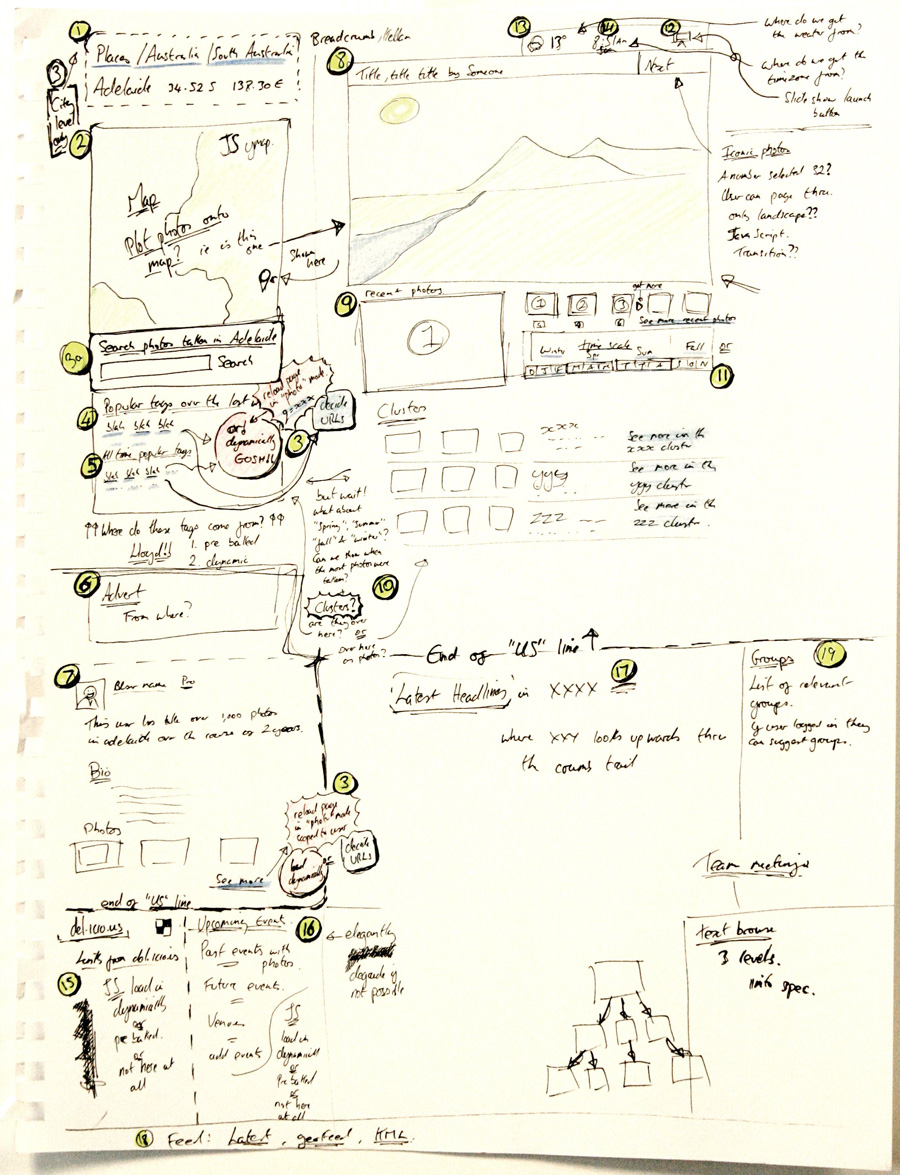 1
Places / Australia / South Australia
Adelaide 34.52 S 138.30 E
3
City
level
only
Breadcrumbs,
13
13°
14
12
Where do we get
the weather from?
Where do we get the
timezone from?
Slide show launch
button
8
Title, title title by Someone
Next
2
JS ymap.
Map
Plot photos onto
map? ie is this
one
Shown
here
Iconic photos
A number selected 32?
User can page thru.
only landscape??
JavaScript.
Transition??
9
recent photos.
1
1
2
3
get more
See more recent photos
time scale
Winter
Spr
Sum
Fall
or
D J F M A M J J A S O N
11
Search photos taken in Adelaide
Search
4
Popular tags over the last
blah blah blah
5
All time popular tags
blah blah blah
reload page
in "photo" mode.
or
dynamically
GOSH!!
3
decide
URLs
Cluster
xxx
See more in the
xxx cluster
yyy
See more in the
yyy cluster
zzz
See more in the
zzz cluster.
?? Where do these tags come from? ??
Lloyd!!
1. pre baked
2. dynamic
but wait!
what about
"Spring", "Summer"
"fall" & "winter"?
Can we show when
the most photos were
taken?
10
Clusters?
are they over
here? or
over here
as photos?
6
Advert
From where?
End of "US" line
7
User name Pro
This user has take over 1,000 photos
in adelaide over the course of 2 years.
Bio
Photos
See more
3
reload page
in "photo" mode
scoped to user
or
load
dynamically
decide
URLs
end of "US" line
17
'Latest Headlines' in XXXX
where XXX looks upwards thru
the crumb trail
19
Groups
List of relevant
groups.
If user logged in they
can suggest groups.
Team meetings
text browse
3 levels.
into spec.
del.icio.us
Links from del.icio.us
15
JS load in
dynamically
or
pre baked.
or
not here at
all
Upcoming Events.
16
Past events with
photos.
Future events.
Venues
add events
JS
load in
dynamically
or
Pre baked
or
not here
at all
elegantly
degrade if
not possible
18 Feed: Latest, geofeed, KML.